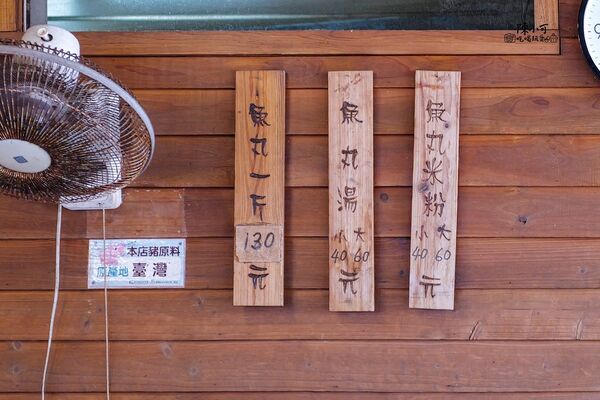 魚丸一斤
130
元
魚丸湯
小 大
40 60
元
魚丸米粉
小 大
40 60
元
本店豬原料
原產地 臺灣
陳小可
吃喝玩樂